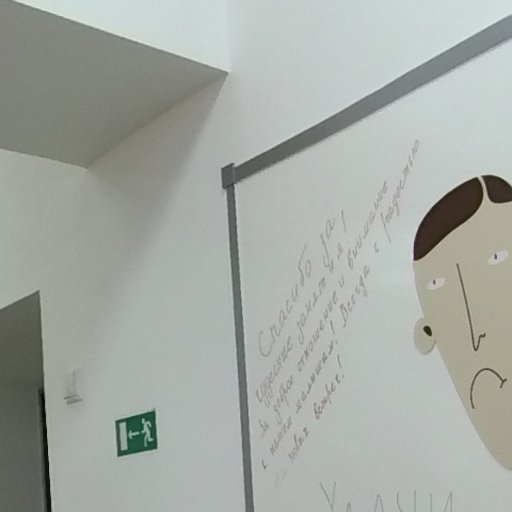 Спасибо за
чудесные занятия!
За доброе отношение и внимание
к нашим малышам! Всегда с радостью
новых встреч!
Удачи